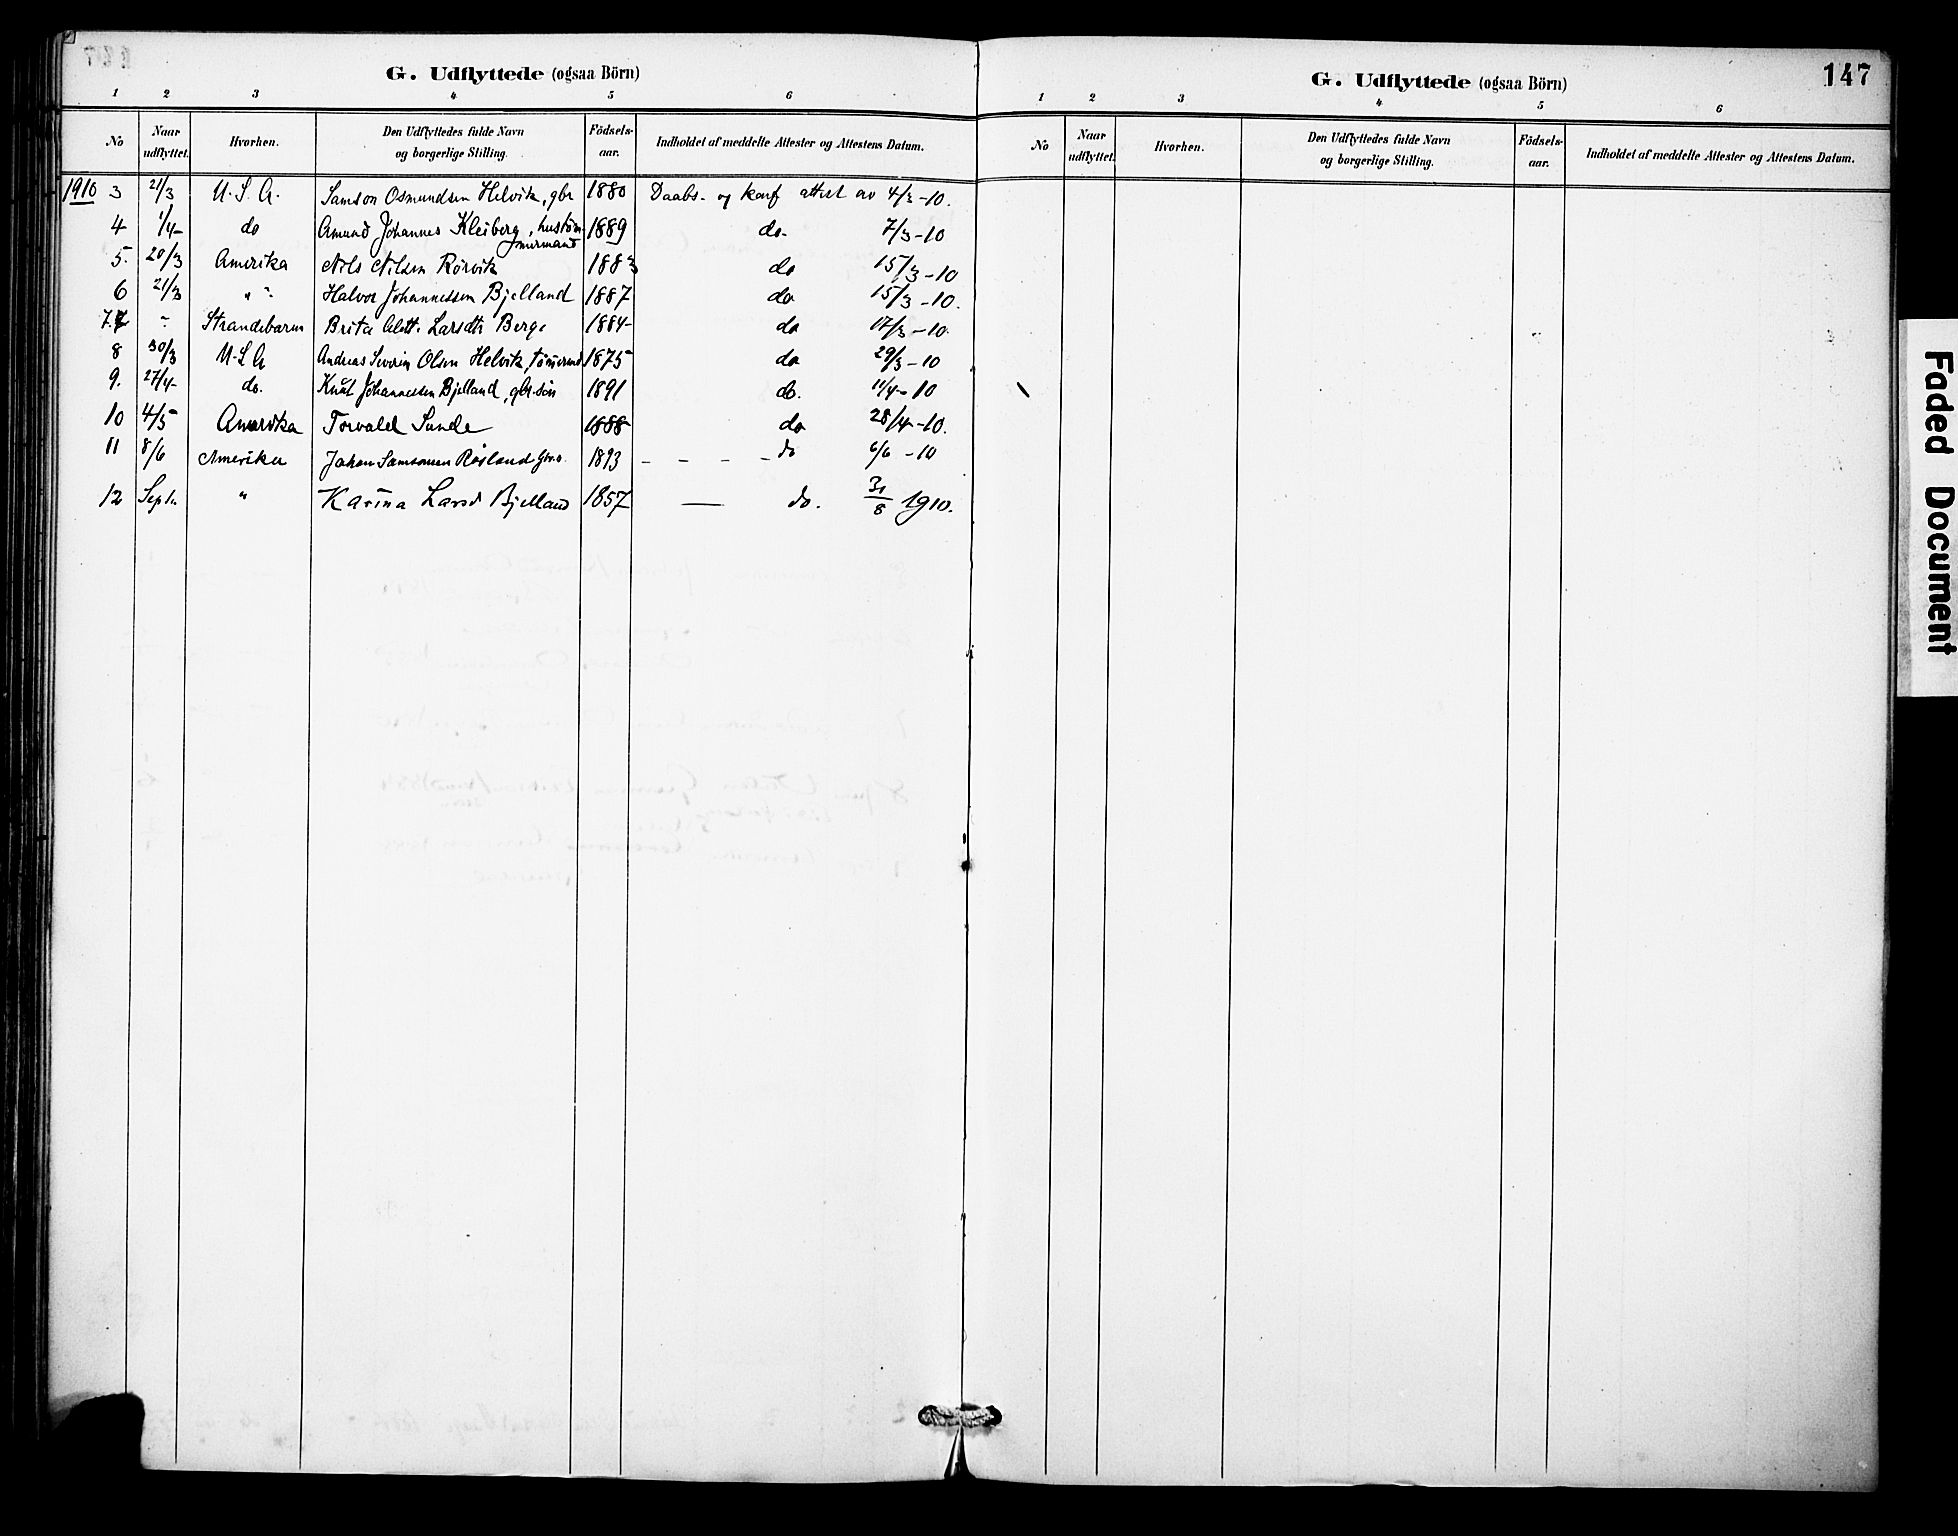 G. Udflyttede (ogsaa Börn)
1 2 3 4 5 6
No Naar udflyttet. Hvorhen. Den Udflyttedes fulde Navn og borgerlige Stilling. Födsels-aar. Indholdet af meddelte Attester og Attestens Datum.
1910 3 21/3 U.S.A. Samson Osmundsen Helvik, gbr 1880 Daabs- og konf attest av 4/3-10.
4 1/4- do Amund Johannes Kleiberg, hustöm- 1889 do- 7/3-10
mermand
5. 20/3 Amerika Nils Nilsen Rörvik 1883 do 15/3-10
6 21/3 " " Halvor Johannessen Bjelland 1887 do 15/3-10.
7. " Strandebarm Brita Larsdtr Berge 1884- do 17/3-10.
8 30/3 U.S.A Andreas Severin Olsen Helvik, tömermd 1875 do 29/3-10
9. 27/4- do. Knut Johannessen Bjelland, gbr. sön 1891 do. 11/4-10
10 4/5 Amerika Torvald Sunde 1888 do 28/4-10.
11 8/6 Amerika Johan Samsonsen Røsland 1893 - - - - do 6/6 -10
12 Septr. " Karina Larsd Bjelland 1857 — do. 31/8 1910.
G. Udflyttede (ogsaa Börn)
147
1 2 3 4 5 6
No Naar udflyttet. Hvorhen. Den Udflyttedes fulde Navn og borgerlige Stilling. Födsels-aar. Indholdet af meddelte Attester og Attestens Datum.
Faded Document